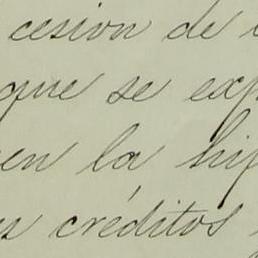 cesion de
que se exp
en la hip
créditos